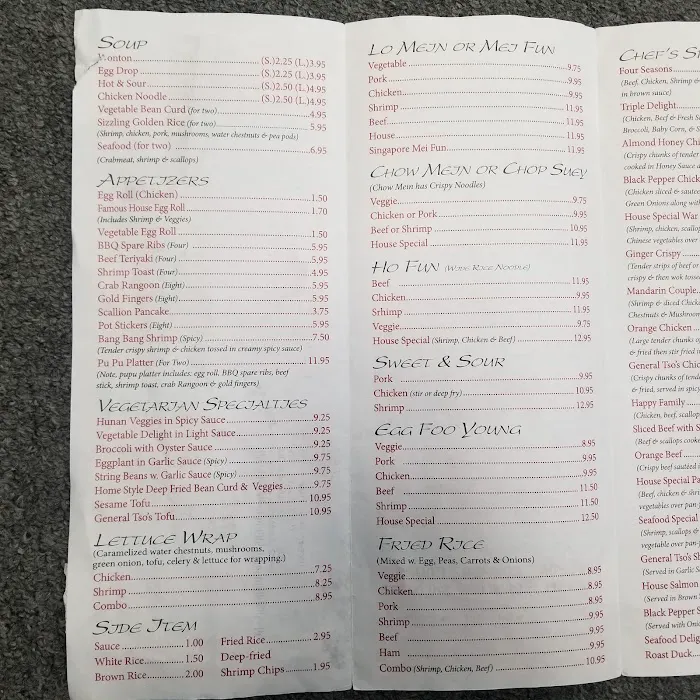 SOUP
Wonton (S.)2.25 (L.)3.95
Egg Drop (S.)2.25 (L.)3.95
Hot & Sour (S.)2.50 (L.)4.95
Chicken Noodle (S.)2.50 (L.)4.95
Vegetable Bean Curd (for two) 4.95
Sizzling Golden Rice (for two) 5.95
(Shrimp, chicken, pork, mushrooms, water chestnuts & pea pods)
Seafood (for two) 6.95
(Crabmeat, shrimp & scallops)
APPETIZERS
Egg Roll (Chicken) 1.50
Famous House Egg Roll 1.70
(Includes Shrimp & Veggies)
Vegetable Egg Roll 1.50
BBQ Spare Ribs (Four) 5.95
Beef Teriyaki (Four) 5.95
Shrimp Toast (Four) 4.95
Crab Rangoon (Eight) 5.95
Gold Fingers (Eight) 5.95
Scallion Pancake 3.75
Pot Stickers (Eight) 5.95
Bang Bang Shrimp (Spicy) 7.50
(Tender crispy shrimp & chicken tossed in creamy spicy sauce)
Pu Pu Platter (For Two) 11.95
(Note, pupu platter includes: egg roll, BBQ spare ribs, beef
stick, shrimp toast, crab Rangoon & gold fingers)
VEGETARIAN SPECIALTIES
Hunan Veggies in Spicy Sauce 9.25
Vegetable Delight in Light Sauce 9.25
Broccoli with Oyster Sauce 9.25
Eggplant in Garlic Sauce (Spicy) 9.75
String Beans w. Garlic Sauce (Spicy) 9.75
Home Style Deep Fried Bean Curd & Veggies 9.75
Sesame Tofu 10.95
General Tso's Tofu 10.95
LETTUCE WRAP
(Caramelized water chestnuts, mushrooms,
green onion, tofu, celery & lettuce for wrapping.)
Chicken 7.25
Shrimp 8.25
Combo 8.95
SIDE ITEM
Sauce 1.00
White Rice 1.50
Brown Rice 2.00
Fried Rice 2.95
Deep-fried
Shrimp Chips 1.95
LO MEIN OR MEI FUN
Vegetable 9.75
Pork 9.95
Chicken 9.95
Shrimp 11.95
Beef 11.95
House 11.95
Singapore Mei Fun 11.95
CHOW MEIN OR CHOP SUEY
(Chow Mein has Crispy Noodles)
Veggie 9.75
Chicken or Pork 9.95
Beef or Shrimp 10.95
House Special 11.95
HO FUN (WIDE RICE NOODLE)
Beef 11.95
Chicken 9.95
Srhimp 11.95
Veggie 9.75
House Special (Shrimp, Chicken & Beef) 12.95
SWEET & SOUR
Pork 9.95
Chicken (stir or deep fry) 10.95
Shrimp 12.95
EGG FOO YOUNG
Veggie 8.95
Pork 9.95
Chicken 9.95
Beef 11.50
Shrimp 11.50
House Special 12.50
FRIED RICE
(Mixed w. Egg, Peas, Carrots & Onions)
Veggie 8.95
Chicken 8.95
Pork 8.95
Shrimp 9.95
Beef 9.95
Ham 9.95
Combo (Shrimp, Chicken, Beef) 10.95
CHEF'S
Four Seasons
(Beef, Chicken, Shrimp &
in brown sauce)
Triple Delight
(Chicken, Beef & Fresh
Broccoli, Baby Corn, &
Almond Honey
(Crispy chunks of tender
cooked in Honey Sauce
Black Pepper
(Chicken sliced &
Green Onions along
House Special War
(Shrimp, chicken,
Chinese vegetables over
Ginger Crispy
(Tender strips of beef or
crispy & then wok tossed
Mandarin Couple
(Shrimp & diced
Chestnuts &
Orange Chicken
(Large tender chunks
& fried then stir fried
General Tso's
(Crispy chunks of
& fried, served in spicy
Happy Family
(Chicken, beef,
Sliced Beef with
(Beef & scallops
Orange Beef
(Crispy beef sautéed
House Special
(Beef, chicken &
vegetables over
Seafood Special
(Shrimp, scallops &
vegetable over
General Tso's
(Served in Garlic
House Salmon
(Served in Brown
Black Pepper
(Served with
Seafood
Roast Duck